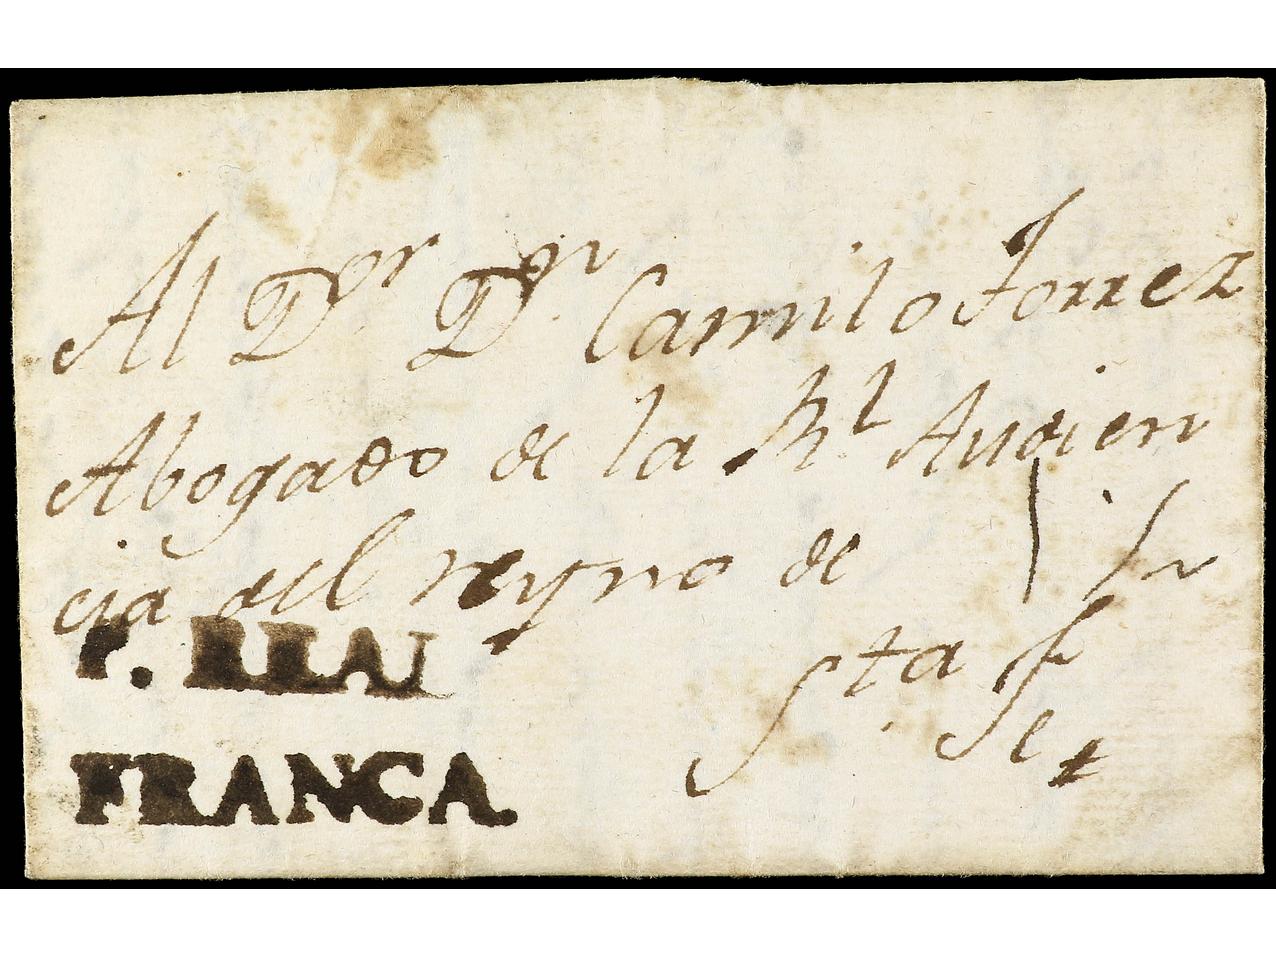 Al Dor Dn Camilo Torrez
Abogado de la Rl Audien
cia del reyno de
Sta Fe
P. REAL
FRANCA.